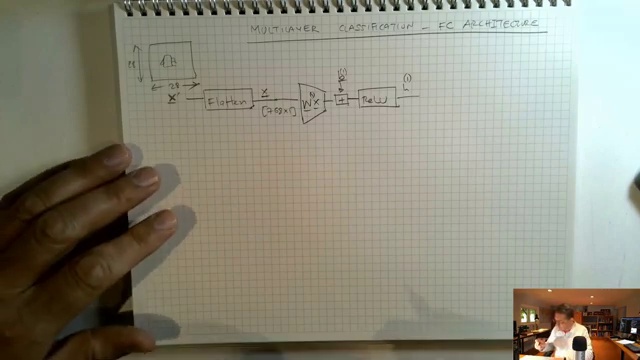 MULTILAYER CLASSIFICATION - FC ARCHITECTURE
28
28
X' Flatten x W⁽¹⁾x + ReLU L⁽¹⁾